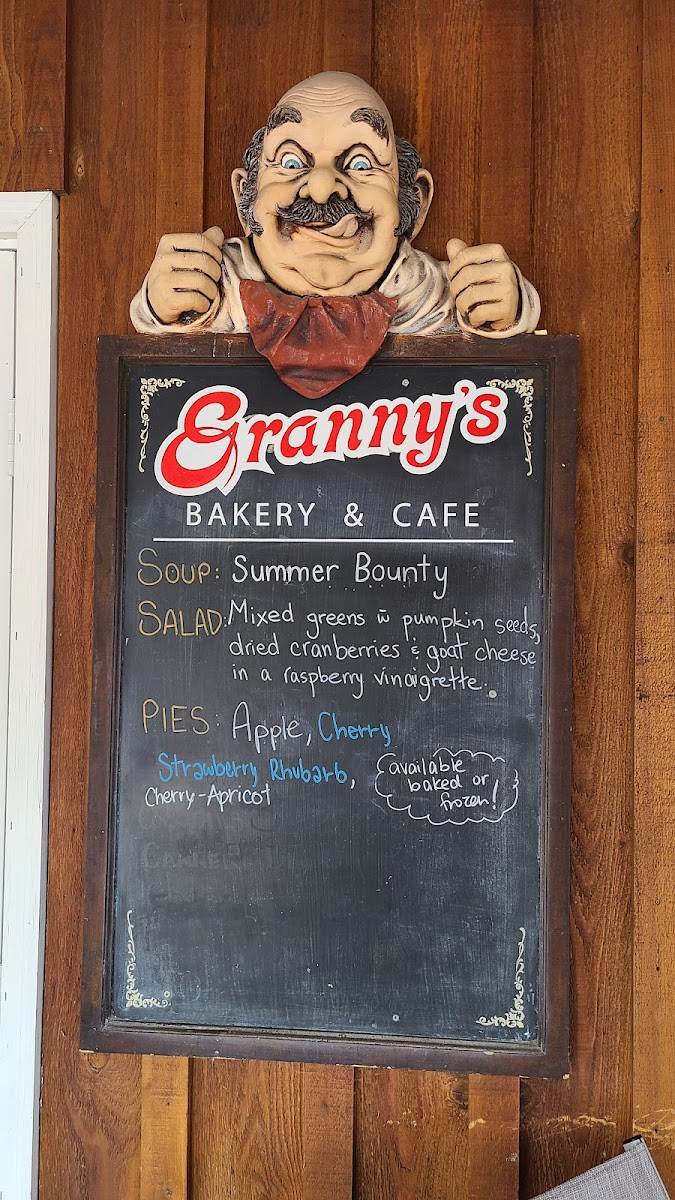 Granny's
BAKERY & CAFE
SOUP: Summer Bounty
SALAD: Mixed greens w̄ pumpkin seeds,
dried cranberries & goat cheese
in a raspberry vinaigrette.
PIES: Apple, Cherry
Strawberry Rhubarb,
Cherry-Apricot
available
baked or
frozen!